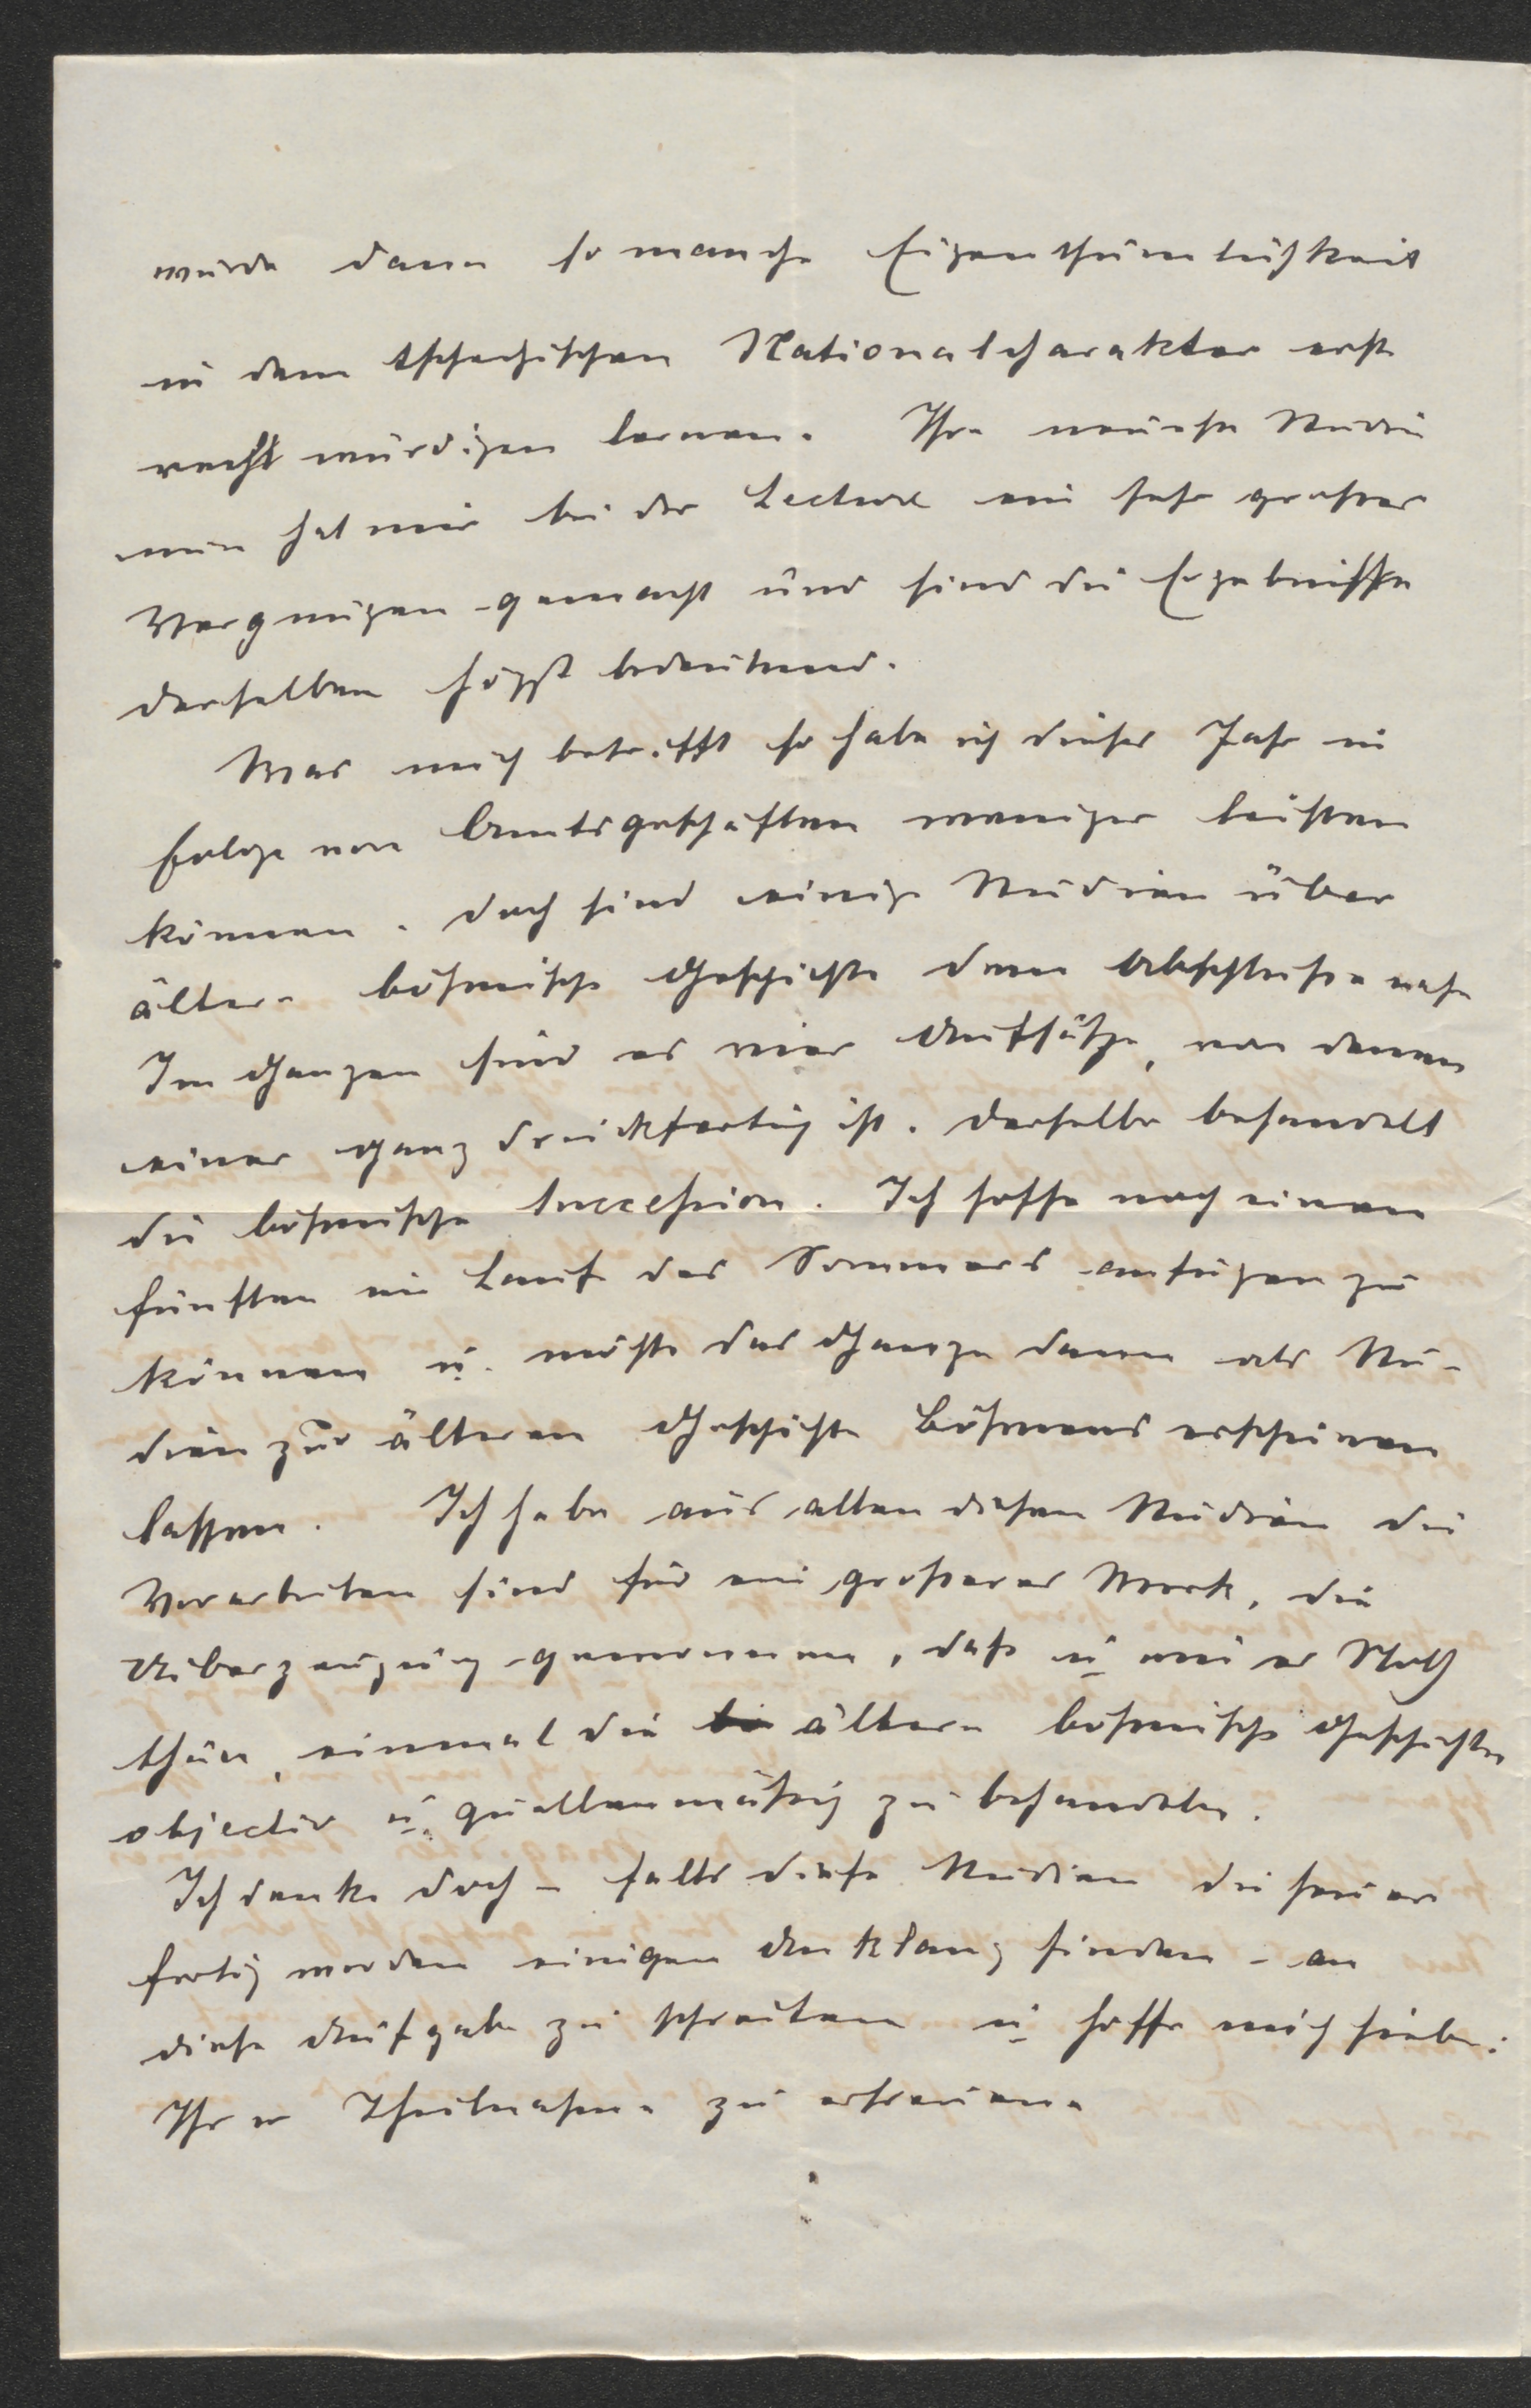 würde dann so manche Eigenthümlichkeit
in dem tschechischen Nationalcharakter erst
recht würdigen lernen. Ihre neueste Studie
nun hat mir bei der Lecture ein sehr großes
Vergnügen gemacht und sind die Ergebnisse
derselben höchst bedeutend.
Was mich betrifft so habe ich dieses Jahr in
Folge von Amtsgeschäften weniger leisten
können. Doch sind einige Studien über
ältere böhmische Geschichte dem Abschlusse nahe
Im Ganzen sind es vier Aufsätze, von denen
einer ganz druckfertig ist. Derselbe behandelt
die böhmische Succession. Ich hoffe noch einen
fünften im Lauf des Sommers anfügen zu
können u. möchte das Ganze dann als Stu-
dien zur älteren Geschichte Böhmens erscheinen
lassen. Ich habe aus allen diesen Studien die
Vorarbeiten sind für ein größeres Werk, die
Uiberzeugung gewonnen, daß u wie es Noth
thue, einmal die bö ältere böhmische Geschichte
objectiv u. quellenmäßig zu behandeln.
Ich denke doch – falls diese Studien die heuer
fertig werden einigen Anklang finden – an
diese Aufgabe zu schreiten u hoffe mich hiebei
Ihrer Theilnahme zu erfreuen.